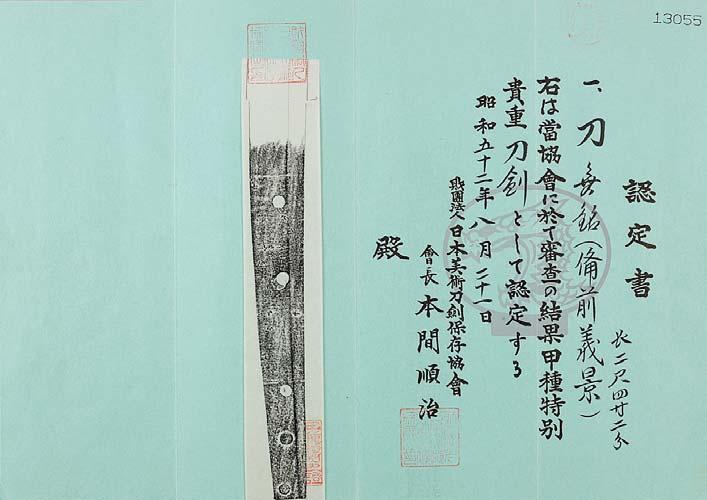 13055
認定書
一、刀 無銘(備前義景)
長二尺四寸二分
右は當協會に於て審査の結果甲種特別
貴重刀劍として認定する
昭和五十二年八月二十一日
財團法人日本美術刀劍保存協會
會長 本間順治
殿